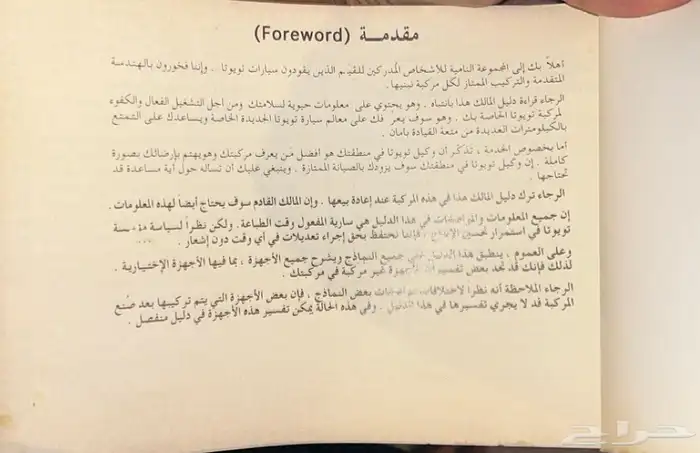 مقدمـــة (Foreword)
أهلاً بك إلى المجموعة النامية للأشخاص المدركين للقيم الذين يقودون سيارات تويوتا . وإننا فخورون بالهندسة
المتقدمة والتركيب الممتاز لكل مركبة نبنيها .
الرجاء قراءة دليل المالك هذا بانتباه . وهو يحتوي على معلومات حيوية لسلامتك ومن اجل التشغيل الفعال والكفوء
لمركبة تويوتا الخاصة بك . وهو سوف يعرفك على معالم سيارة تويوتا الجديدة الخاصة ويساعدك على التمتع
بالكيلومترات العديدة من متعة القيادة بأمان .
أما بخصوص الخدمة ، تذكر أن وكيل تويوتا في منطقتك هو افضل من يعرف مركبتك وهو يهتم بإرضائك بصورة
كاملة . إن وكيل تويوتا في منطقتك سوف يزودك بالصيانة الممتازة . وينبغي عليك أن تسأله حول أية مساعدة قد
تحتاجها .
الرجاء ترك دليل المالك هذا في هذه المركبة عند إعادة بيعها . وإن المالك القادم سوف يحتاج أيضاً لهذه المعلومات .
إن جميع المعلومات والمواصفات في هذا الدليل هي سارية المفعول وقت الطباعة. ولكن نظراً لسياسة مؤسسة
تويوتا في استمرار لتحسين الإنتاج ، فإننا نحتفظ بحق إجراء تعديلات في أي وقت دون إشعار .
وعلى العموم ، ينطبق هذا الدليل على جميع النماذج ويشرح جميع الأجهزة ، بما فيها الأجهزة الإختيارية .
لذلك فإنك قد تجد بعض تفسير الأجهزة غير مركبة في مركبتك .
الرجاء الملاحظة أنه نظراً لاختلافات مواصفات بعض النماذج ، فإن بعض الأجهزة التي يتم تركيبها بعد صنع
المركبة قد لا يجري تفسيرها في هذا الدليل . وفي هذه الحالة يمكن تفسير هذه الأجهزة في دليل منفصل .
حراج